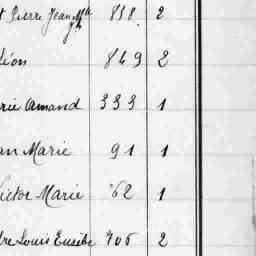 t Pierre Jean Mie 818 2
léon 849 2
rie Amand 333 1
an Marie 91 1
ictor Marie 62 1
dre Louis Eusèbe 706 2